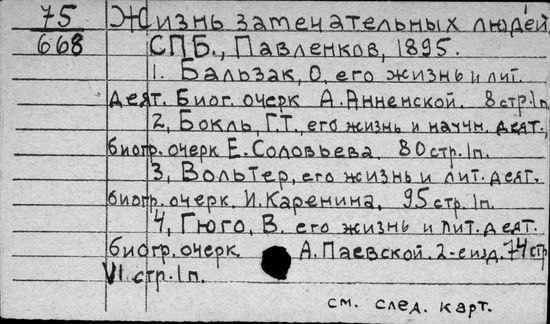 75 Жизнь замечательных людей.
668 СПБ., Павленков, 1895.
1. Бальзак, О. его жизнь и лит.
деят. Биог. очерк А. Анненской. 8 стр. 1 п.
2, Бокль, Г.Т., его жизнь и научн. деят.,
биогр. очерк Е. Соловьева. 80 стр. 1 п.
3, Вольтер, его жизнь и лит. деят.
биогр. очерк, И. Каренина, 95 стр. 1 п.
4, Гюго, В. его жизнь и лит. деят.
биогр. очерк. А. Паевской. 2-е изд. 74 стр
VI стр. 1 п.
см. след. карт.